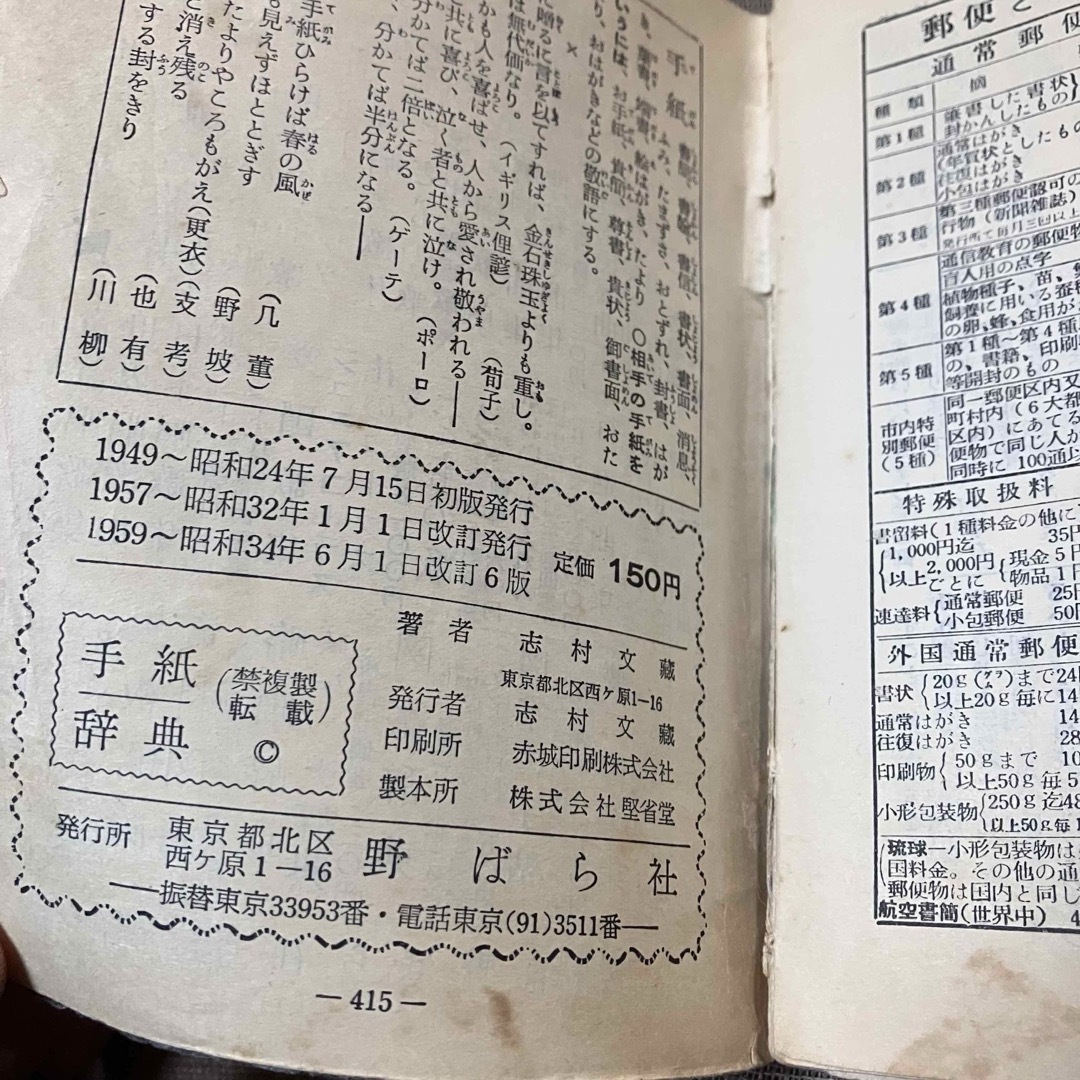 手紙 書簡、書翰、書信、書状、書面、消息、
き、葉書、端書、絵はがき、たより 〇相手の手紙を
いうには、お手紙、貴簡、尊書、貴状、御書面、おた
り、おはがきなどの敬語にする。
×
に贈るに言を以てすれば、金石珠玉よりも重し。
(荀子)
は無代価なり。(イギリス俚諺)
かも人を喜ばせ、人から愛され敬われる――
と共に喜び、泣く者と共に泣け。(ポーロ)
、分かてば二倍となる。
、分かてば半分になる―― (ゲーテ)
手紙ひらけば春の風 (几董)
も見えずほととぎす (野坡)
たよりやころもがえ(更衣) (支考)
と消え残る (也有)
する封をきり (川柳)
1949～昭和24年7月15日初版発行
1957～昭和32年1月1日改訂発行
1959～昭和34年6月1日改訂6版
定価 150円
手紙辞典
(禁複製転載)
©
著者 志村文藏
東京都北区西ケ原1-16
発行者 志村文藏
印刷所 赤城印刷株式会社
製本所 株式会社堅省堂
発行所 東京都北区西ケ原1-16 野ばら社
――振替東京33953番・電話東京(91)3511番――
― 415 ―
郵便と
通常郵便
種類 摘
第1種 筆書した書状
封かんしたもの
第2種 通常はがき
(年賀状としたもの
往復はがき
小包はがき
第3種 第三種郵便認可の
行物(新聞雑誌)
発行所で毎月三回以上
第4種 通信教育の郵便物
盲人用の点字
植物種子、苗、
飼養に用いる蚕種
の卵、蜂、食用が
第5種 第1種～第4種
の、書籍、印刷
等開封のもの
市内特別郵便(5種) 同一郵便区内又
町村内(6大都
区内)にあてる
便物で同じ人か
同時に100通以
特殊取扱料
書留料(1種料金の他に
1,000円迄 35円
2,000円
以上ごとに 現金5円
物品1円
速達料 通常郵便 25円
小包郵便 50円
外国通常郵便
書状 20gまで24
以上20g毎に14
通常はがき 14
往復はがき 28
印刷物 50gまで 10
以上50g毎5
小形包装物 250g迄48
以上50g毎1
琉球―小形包装物は
国料金。その他の通
郵便物は国内と同じ
航空書簡(世界中) 4